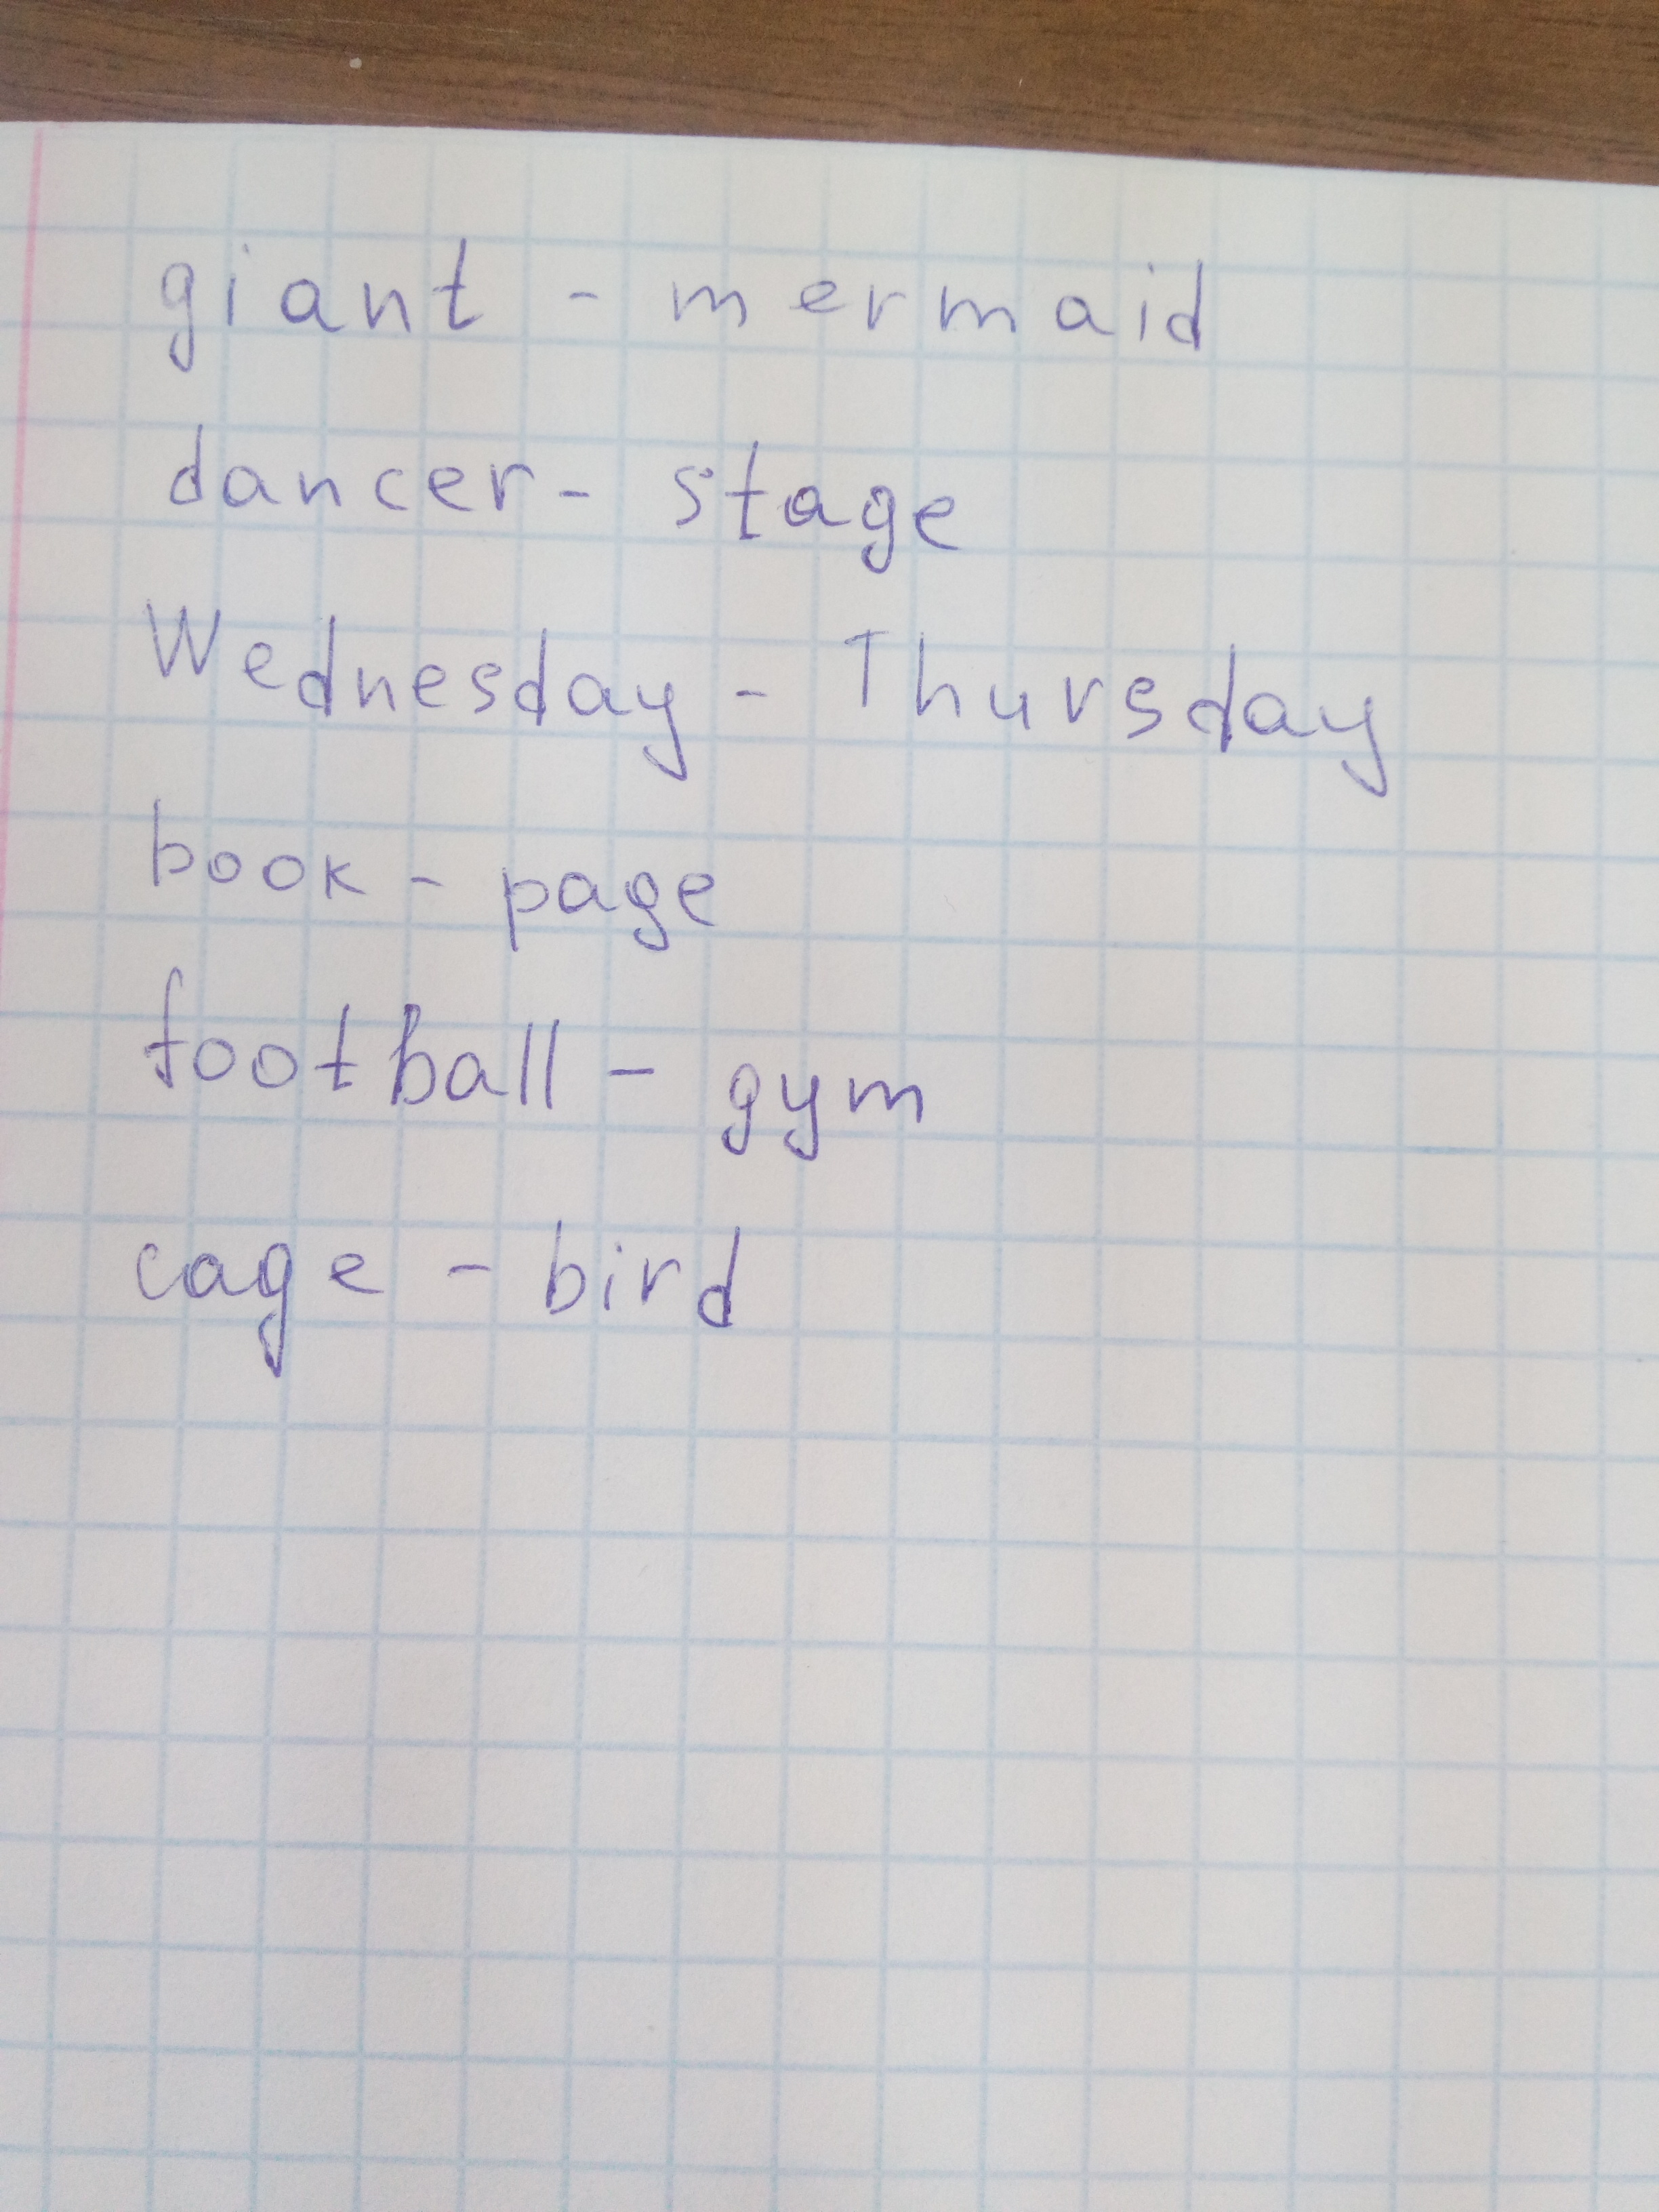 giant - mermaid
dancer - stage
Wednesday - Thursday
book - page
football - gym
cage - bird